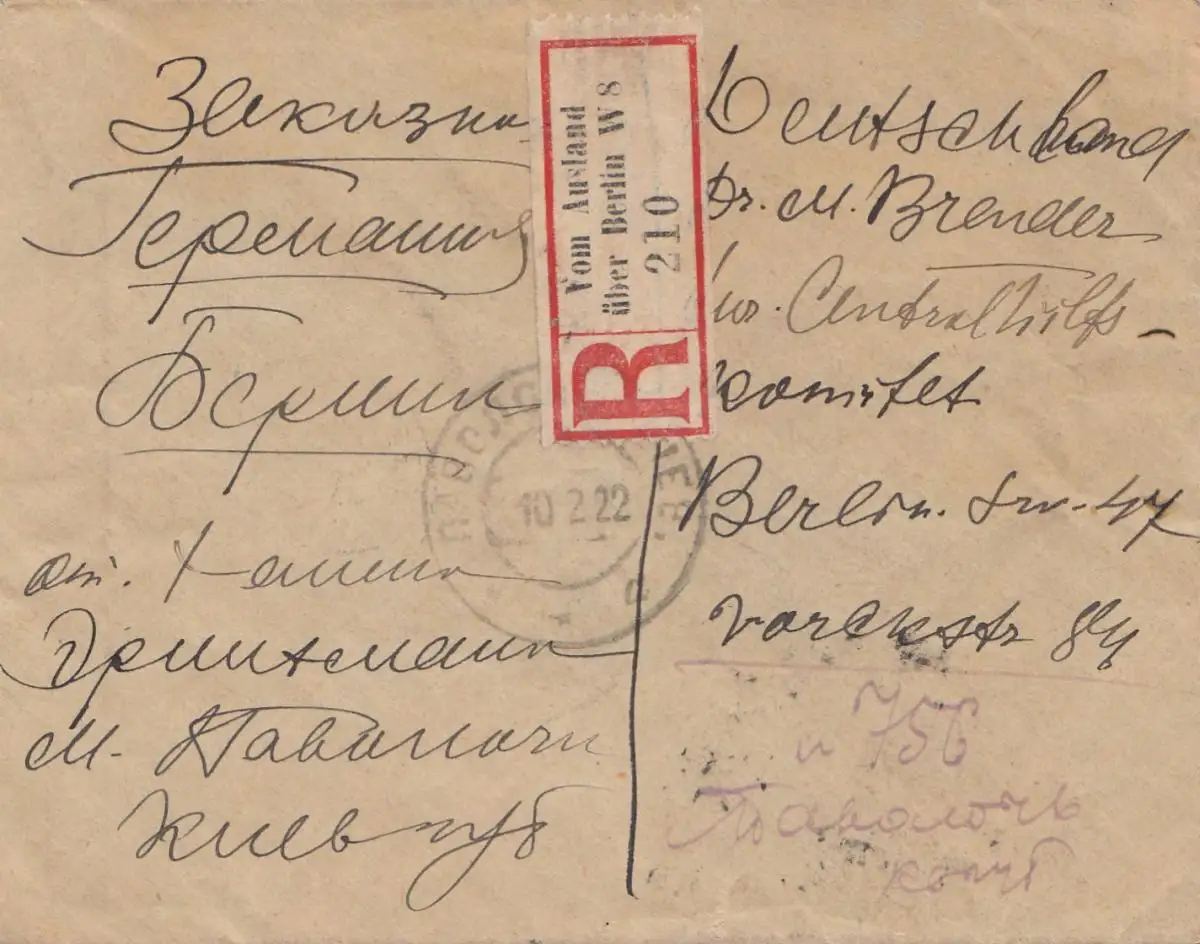 Заказно
Германия
Берлин
от. Ханны
м. Паволочи
Киев губ
Vom Ausland
über Berlin W 8
210
R
Deutschland
Dr. M. Brender
Centralhilfs-
komitet
Berlin. Sw. 47
Yorckstr 84
10 2 22
756
Паволочь